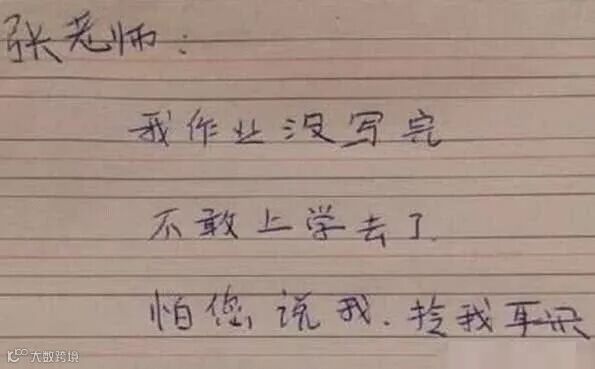 张老师：
我作业没写完
不敢上学去了.
怕您说我.拎我耳
大数跨境